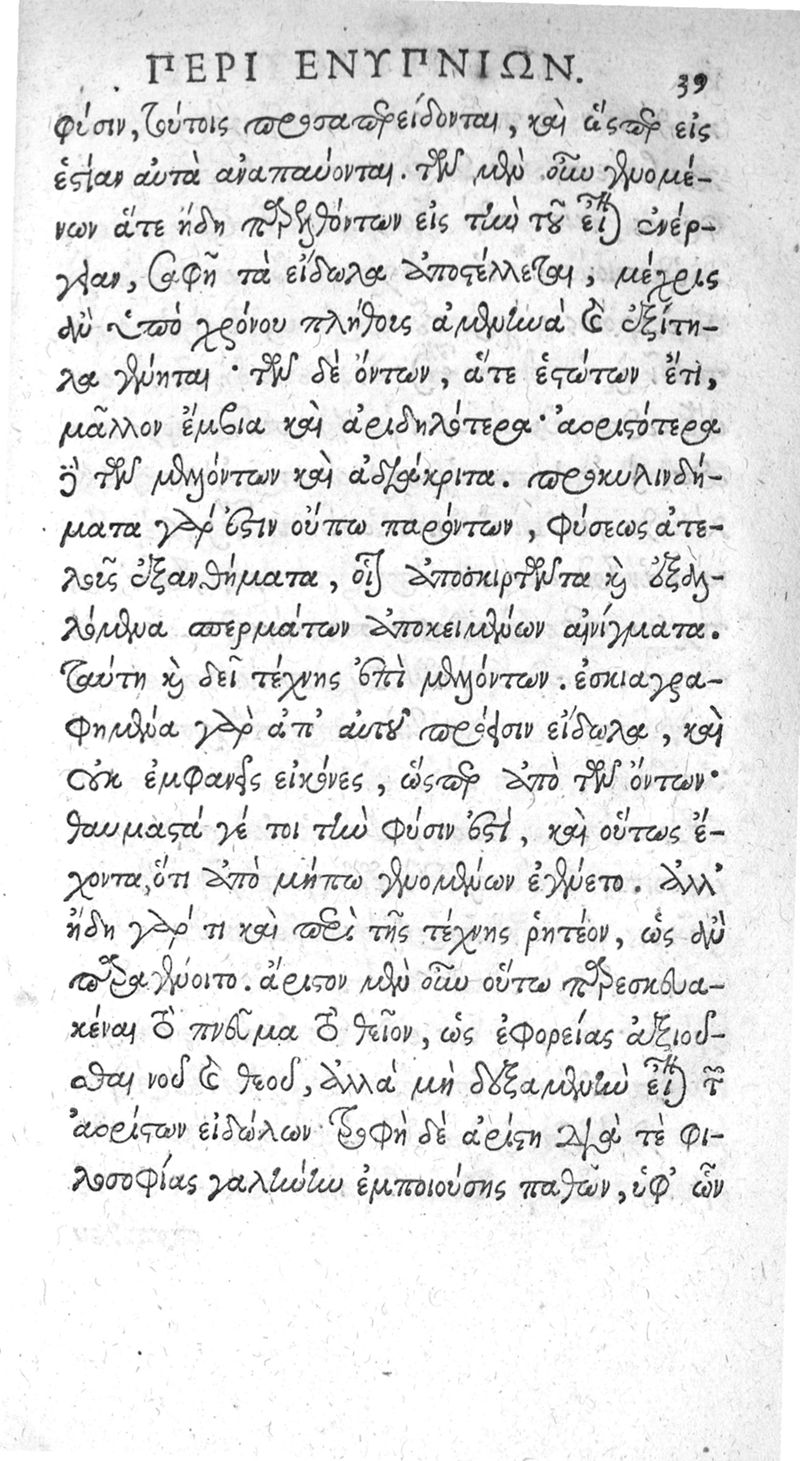 ΠΕΡΙ ΕΝΥΠΝΙΩΝ. 39
φύσιν, τούτοις προσαπερείδονται, καὶ ὥσπερ εἰς
ἑστίαν αὐτὰ ἀναπαύονται. τῶν μὲν οὖν γενομέ-
νων ἅτε ἤδη παρελθόντων εἰς τὴν τοῦ εἶναι ἐνέρ-
γειαν, σαφῆ τὰ εἴδωλα ἀποστέλλεται, μέχρις
ἂν ὑπὸ χρόνου πλήθους ἀμενηνὰ καὶ ἐξίτη-
λα γένηται· τῶν δὲ ὄντων, ἅτε ἑστώτων ἔτι,
μᾶλλον ἔμβια καὶ ἀριδηλότερα· ἀοριστότερα
δὲ τῶν μελλόντων καὶ ἀδιάκριτα. προκυλινδή-
ματα γάρ ἐστιν οὔπω παρόντων, φύσεως ἀτε-
λοῦς ἐξανθήματα, οἷον ἀποσκιρτῶντα καὶ ἐξαλ-
λόμενα σπερμάτων ἀποκειμένων αἰνίγματα.
ταύτη καὶ δεῖ τέχνης ἐπὶ μελλόντων. ἐσκιαγρα-
φημένα γὰρ ἀπ' αὐτοῦ πρόεισιν εἴδωλα, καὶ
οὐκ ἐμφανεῖς εἰκόνες, ὥσπερ ἀπὸ τῶν ὄντων·
θαυμαστά γέ τοι τὴν φύσιν ἐστί, καὶ οὕτως ἔ-
χοντα, ὅτι ἀπὸ μήπω γενομένων ἐγένετο. ἀλλ'
ἤδη γάρ τι καὶ περὶ τῆς τέχνης ῥητέον, ὡς ἂν
παραγένοιτο. ἄριστον μὲν οὖν οὕτω παρεσκευα-
κέναι τὸ πνεῦμα τὸ θεῖον, ὡς ἐφορείας ἀξιοῦ-
σθαι νοῦ καὶ θεοῦ, ἀλλὰ μὴ δεξαμενὴν εἶναι τῶν
ἀορίστων εἰδώλων· τροφὴ δὲ ἀρίστη διὰ τὲ φι-
λοσοφίας γαλήνην ἐμποιούσης παθῶν, ὑφ' ὧν